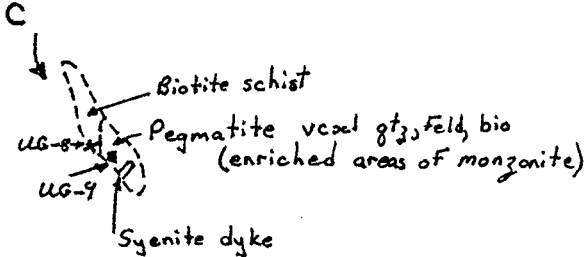 C
Biotite schist
Pegmatite vcxl qtz, feld, bio
(enriched areas of monzonite)
UG-8
UG-9
Syenite dyke